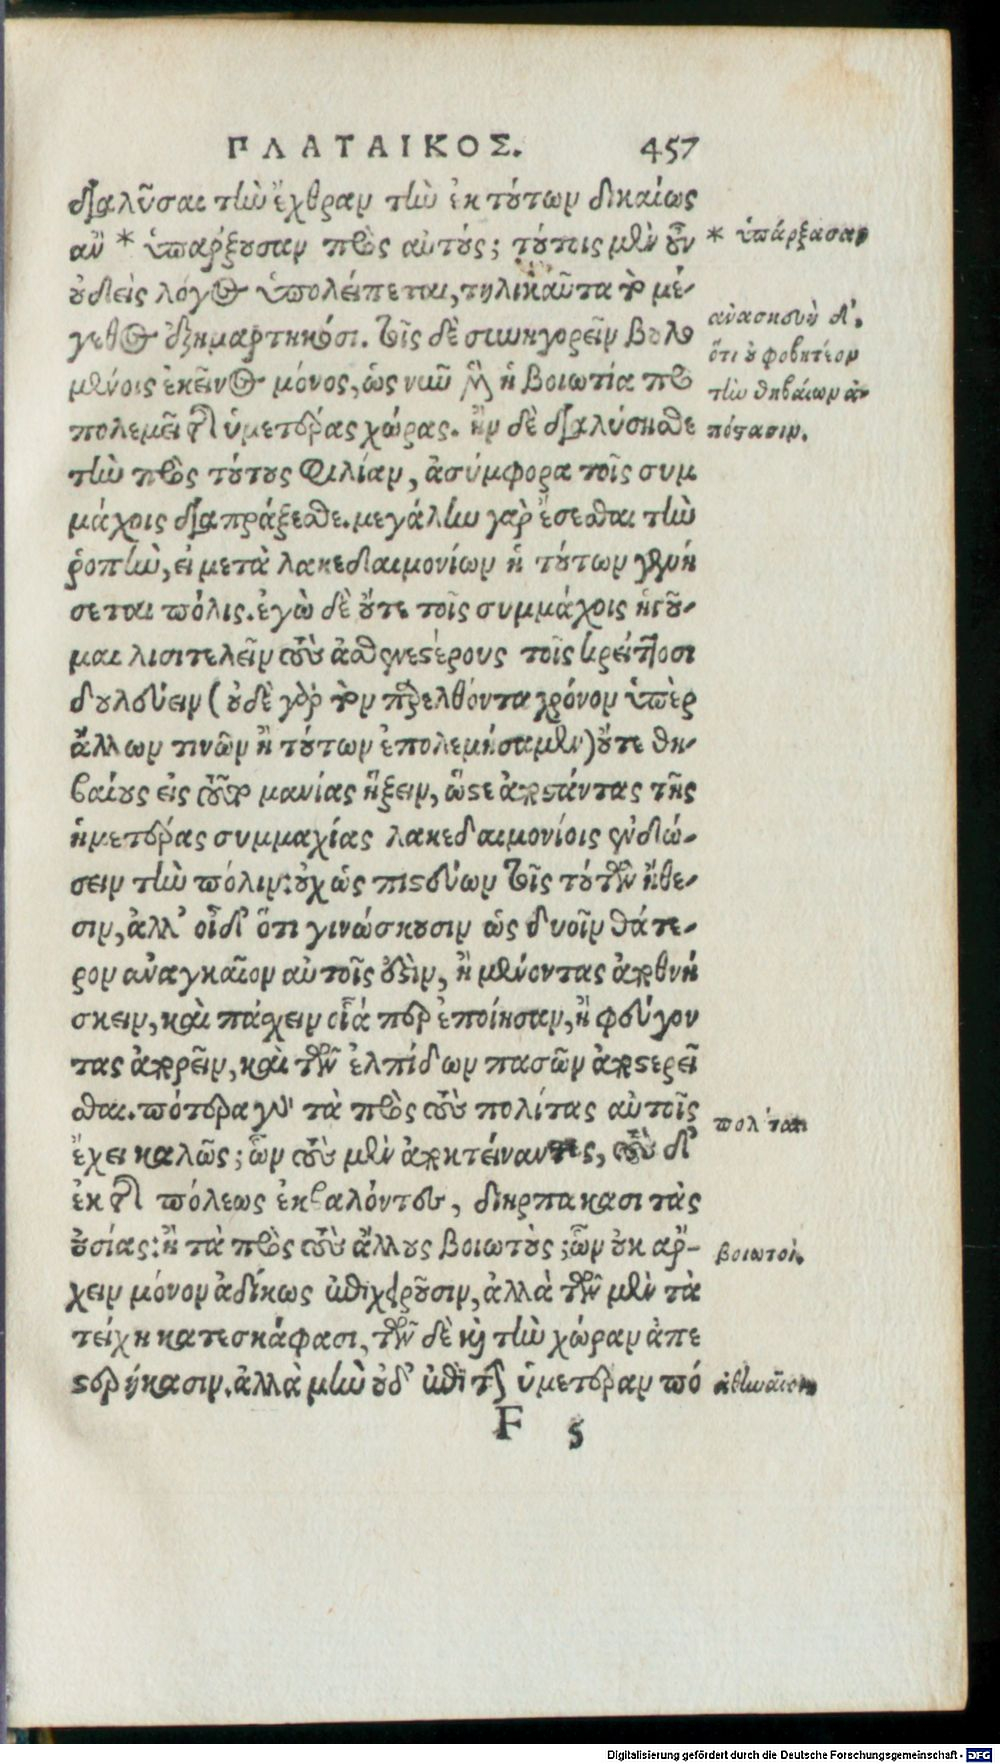 ΠΛΑΤΑΙΚΟΣ. 457
διαλῦσαι τὴν ἔχθραν τὴν ἐκ τούτων δικαίως
ἂν * ὑπάρξουσαν πρὸς αὐτούς; τούτοις μὲν οὖν
οὐδεὶς λόγος ὑπολείπεται, τηλικαῦτα τὸ μέ-
γεθος ἐξημαρτηκόσι. τοῖς δὲ συνηγορεῖν βουλο
μένοις ἐκεῖνος μόνος, ὡς νῦν μὲν ἡ βοιωτία προ
πολεμεῖ τῆς ὑμετέρας χώρας. ἢν δὲ διαλύσησθε
τὴν πρὸς τούτους φιλίαν, ἀσύμφορα τοῖς συμ
μάχοις διαπράξεσθε. μεγάλην γὰρ ἔσεσθαι τὴν
ῥοπὴν, εἰ μετὰ λακεδαιμονίων ἡ τούτων γενή
σεται πόλις. ἐγὼ δὲ οὔτε τοῖς συμμάχοις ἡγοῦ-
μαι λισιτελεῖν τοὺς ἀσθενεστέρους τοῖς κρείττοσι
δουλεύειν (οὐδὲ γὰρ τὸν παρελθόντα χρόνον ὑπὲρ
ἄλλων τινῶν ἢ τούτων ἐπολεμήσαμεν) οὔτε θη-
βαίους εἰς τοῦτο μανίας ἥξειν, ὥστε ἀποστάντας τῆς
ἡμετέρας συμμαχίας λακεδαιμονίοις ἐνδώ-
σειν τὴν πόλιν: οὐχ ὡς πιστεύων τοῖς τούτων ἤθε-
σιν, ἀλλ' οἶδ' ὅτι γινώσκουσιν ὡς δυοῖν θάτε-
ρον ἀναγκαῖον αὐτοῖς ὅξιν, ἢ μένοντας ἀποθνή
σκειν, καὶ πάσχειν οἷά περ ἐποίησαν, ἢ φεύγον
τας ἀπορεῖν, καὶ τῶν ἐλπίδων πασῶν ἀποστερεῖ
σθαι. πότερα γὰρ τὰ πρὸς τοὺς πολίτας αὐτοῖς
ἔχει καλῶς; ὧν τοὺς μὲν ἀποκτείναντες, τοὺς δ'
ἐκ τῆς πόλεως ἐκβαλόντες, διηρπάκασι τὰς
οὐσίας: ἢ τὰ πρὸς τοὺς ἄλλους βοιωτούς; ὧν οὐκ ἄρ-
χειν μόνον ἀδίκως ἐπιχειροῦσιν, ἀλλὰ τῶν μὲν τὰ
τείχη κατεσκάφασι, τῶν δὲ καὶ τὴν χώραν ἀπε
στερήκασιν. ἀλλὰ μὴν οὐδ' ἐπὶ τὴν ὑμετέραν πό
F 5
* ὑπάρξασαν
ἀνασκευὴ δ'.
ὅτι οὐ φοβητέον
τὴν θηβαίων ἀ-
πόστασιν.
πολῖται
βοιωτοὶ.
ἀθηναῖοι
Digitalisierung gefördert durch die Deutsche Forschungsgemeinschaft - DFG